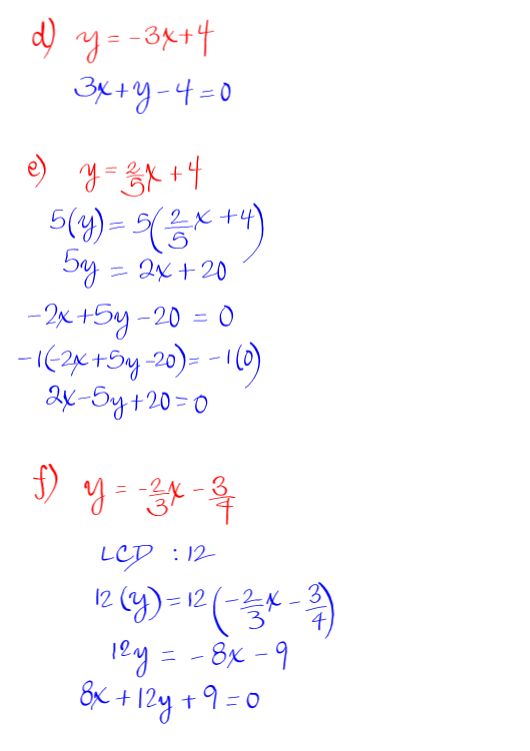 d) y = -3x+4
3x+y-4=0
e) y = 2/5x+4
5(y) = 5(2/5x+4)
5y = 2x+20
-2x+5y-20 = 0
-1(-2x+5y-20) = -1(0)
2x-5y+20=0
f) y = -2/3x - 3/4
LCD : 12
12(y) = 12(-2/3x - 3/4)
12y = -8x - 9
8x+12y+9=0